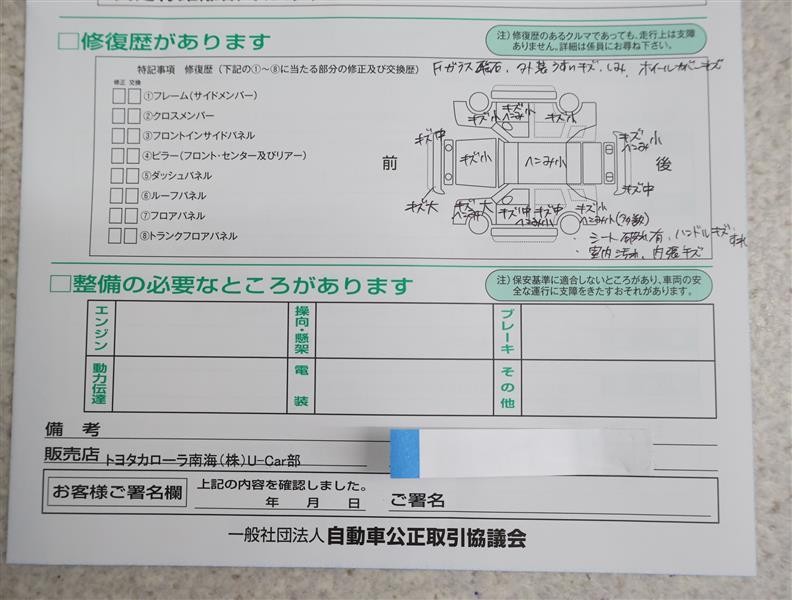 □修復歴があります
注）修復歴のあるクルマであっても、走行上は支障
ありません。詳細は係員にお尋ね下さい。
特記事項　修復歴（下記の①〜⑧に当たる部分の修正及び交換歴）
Fガラス飛石、外装うすいキズ、しみ、ホイールカバーキズ
修正 交換
□□①フレーム（サイドメンバー）
□□②クロスメンバー
□□③フロントインサイドパネル
□□④ピラー（フロント・センター及びリアー）
□□⑤ダッシュパネル
□□⑥ルーフパネル
□□⑦フロアパネル
□□⑧トランクフロアパネル
キズ小 キズ小 ヘコみ小 キズ小
キズ中 キズ小 ヘコみ小
前 キズ小 ヘコみ小 後
キズ中
キズ大 キズ大 ヘコみ大 キズ中 キズ中 ヘコみ小 キズ小
ヘコみ小（多数）
・シート破れ有、ハンドルキズ すれ
・室内汚れ、内張キズ
□整備の必要なところがあります
注）保安基準に適合しないところがあり、車両の安
全な運行に支障をきたすおそれがあります。
エンジン 操向・懸架 ブレーキ
動力伝達 電装 その他
備考
販売店 トヨタカローラ南海（株）U-Car部
お客様ご署名欄 上記の内容を確認しました。
年 月 日 ご署名
一般社団法人 自動車公正取引協議会